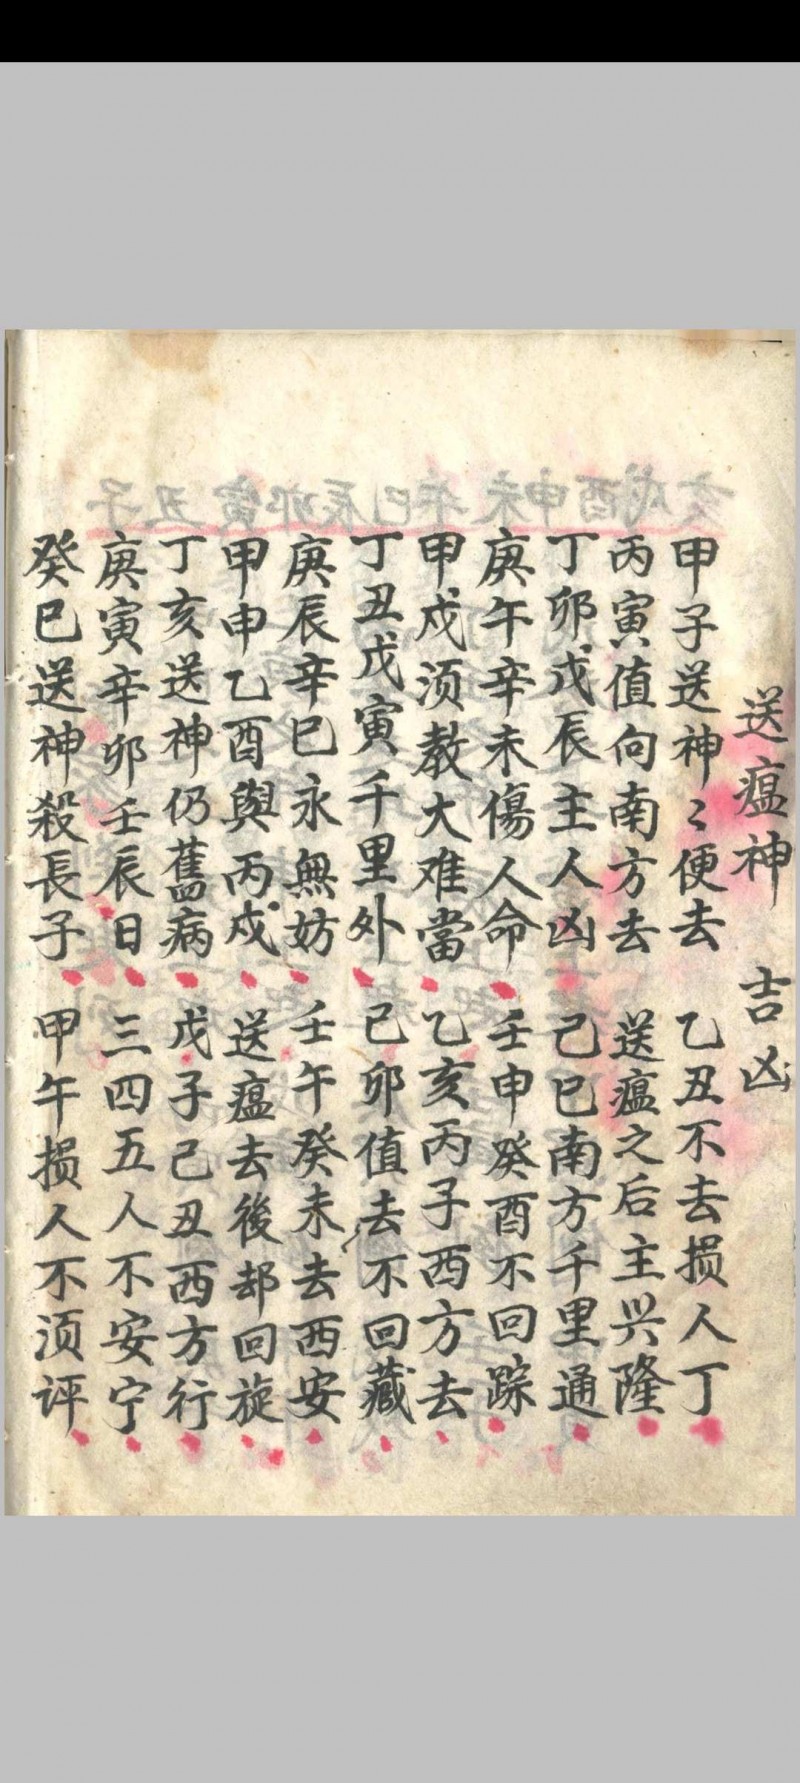 送瘟神 吉凶
甲子送神々便去 乙丑不去损人丁
丙寅值向南方去 送瘟之后主兴隆
丁卯戊辰主人凶 己巳南方千里通
庚午辛未傷人命 壬申癸酉不回踪
甲戍须教大难當 乙亥丙子西方去
丁丑戊寅千里外 己卯值去不回藏
庚辰辛巳永無妨 壬午癸未去西安
甲申乙酉與丙戍 送瘟去後却回旋
丁亥送神仍舊病 戊子己丑西方行
庚寅辛卯壬辰日 三四五人不安宁
癸巳送神殺長子 甲午损人不须评
亥戍酉申未午巳辰卯寅丑子